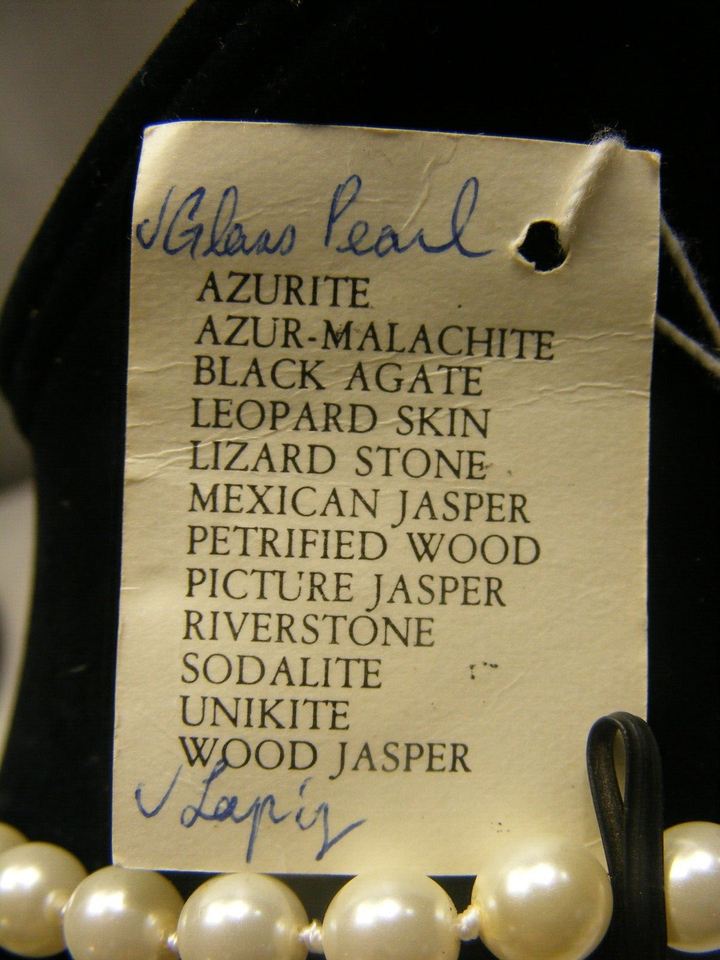 ✓Glass Pearl
AZURITE
AZUR-MALACHITE
BLACK AGATE
LEOPARD SKIN
LIZARD STONE
MEXICAN JASPER
PETRIFIED WOOD
PICTURE JASPER
RIVERSTONE
SODALITE
UNIKITE
WOOD JASPER
✓Lapiz